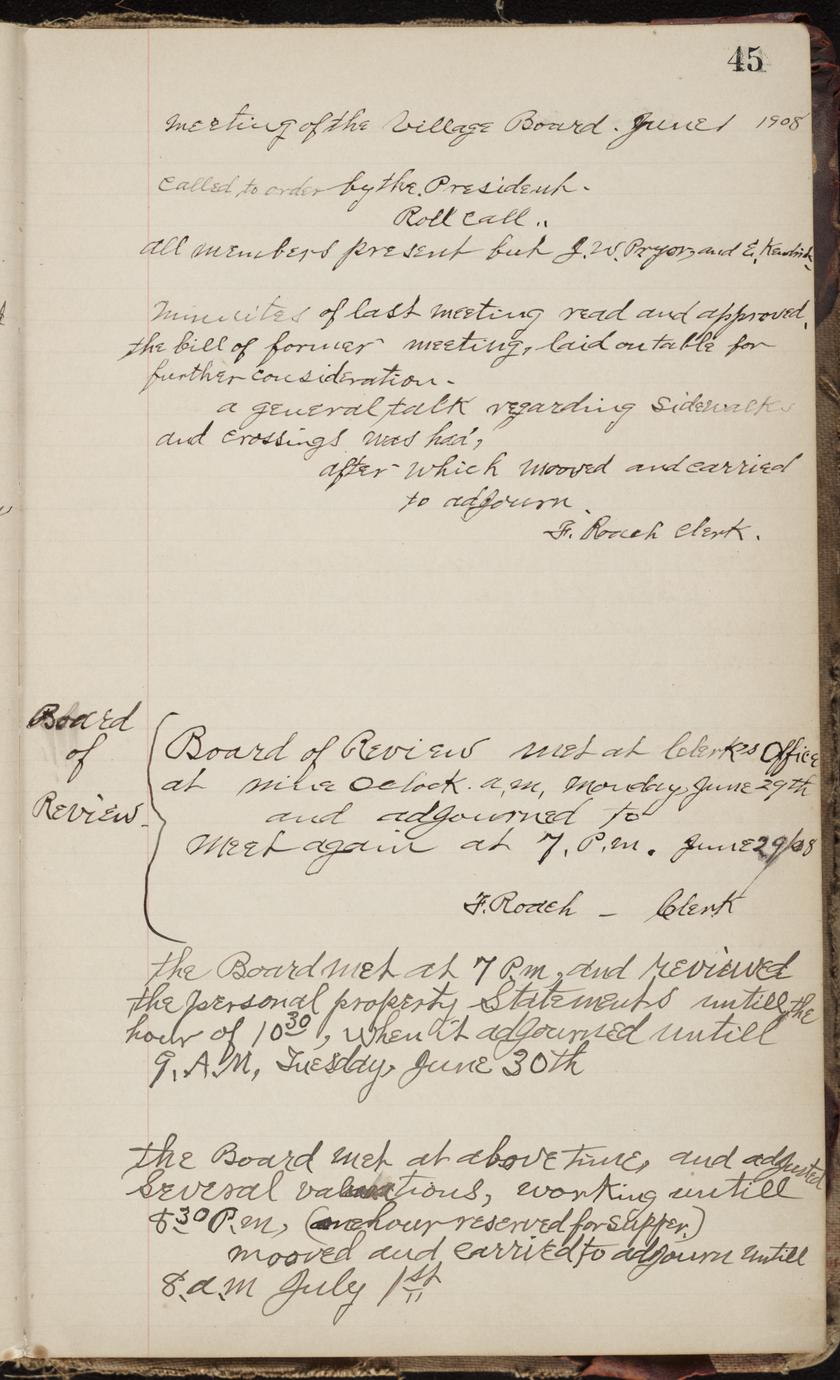 45
Meeting of the Village Board. June 1 1908
Called to order by the President.
Roll Call..
all members present but J. W. Pryor, and E. Kendrick
Minuites of last meeting read and approved,
the bill of former meeting, laid on table for
further consideration.
a general talk regarding Sidewalks
and Crossings was had,
after which mooved and carried
to adjourn.
F. Roach Clerk.
Board
of
Review
Board of Review met at Clerks Office
at nine Oclock. a.m, Monday, June 29th
and adjourned to
Meet again at 7. P.m. June 29/08
F. Roach - Clerk
the Board met at 7 P.m, and reviewed
the personal property Statements untill, the
hour of 10 30, when it adjourned untill
9. A.M, Tuesday, June 30th
the Board met at above time, and adjusted
Several valuations, working untill
8 30 P.m, (one hour reserved for Supper.)
mooved and carried, to adjourn untill
8. a.m July 1st